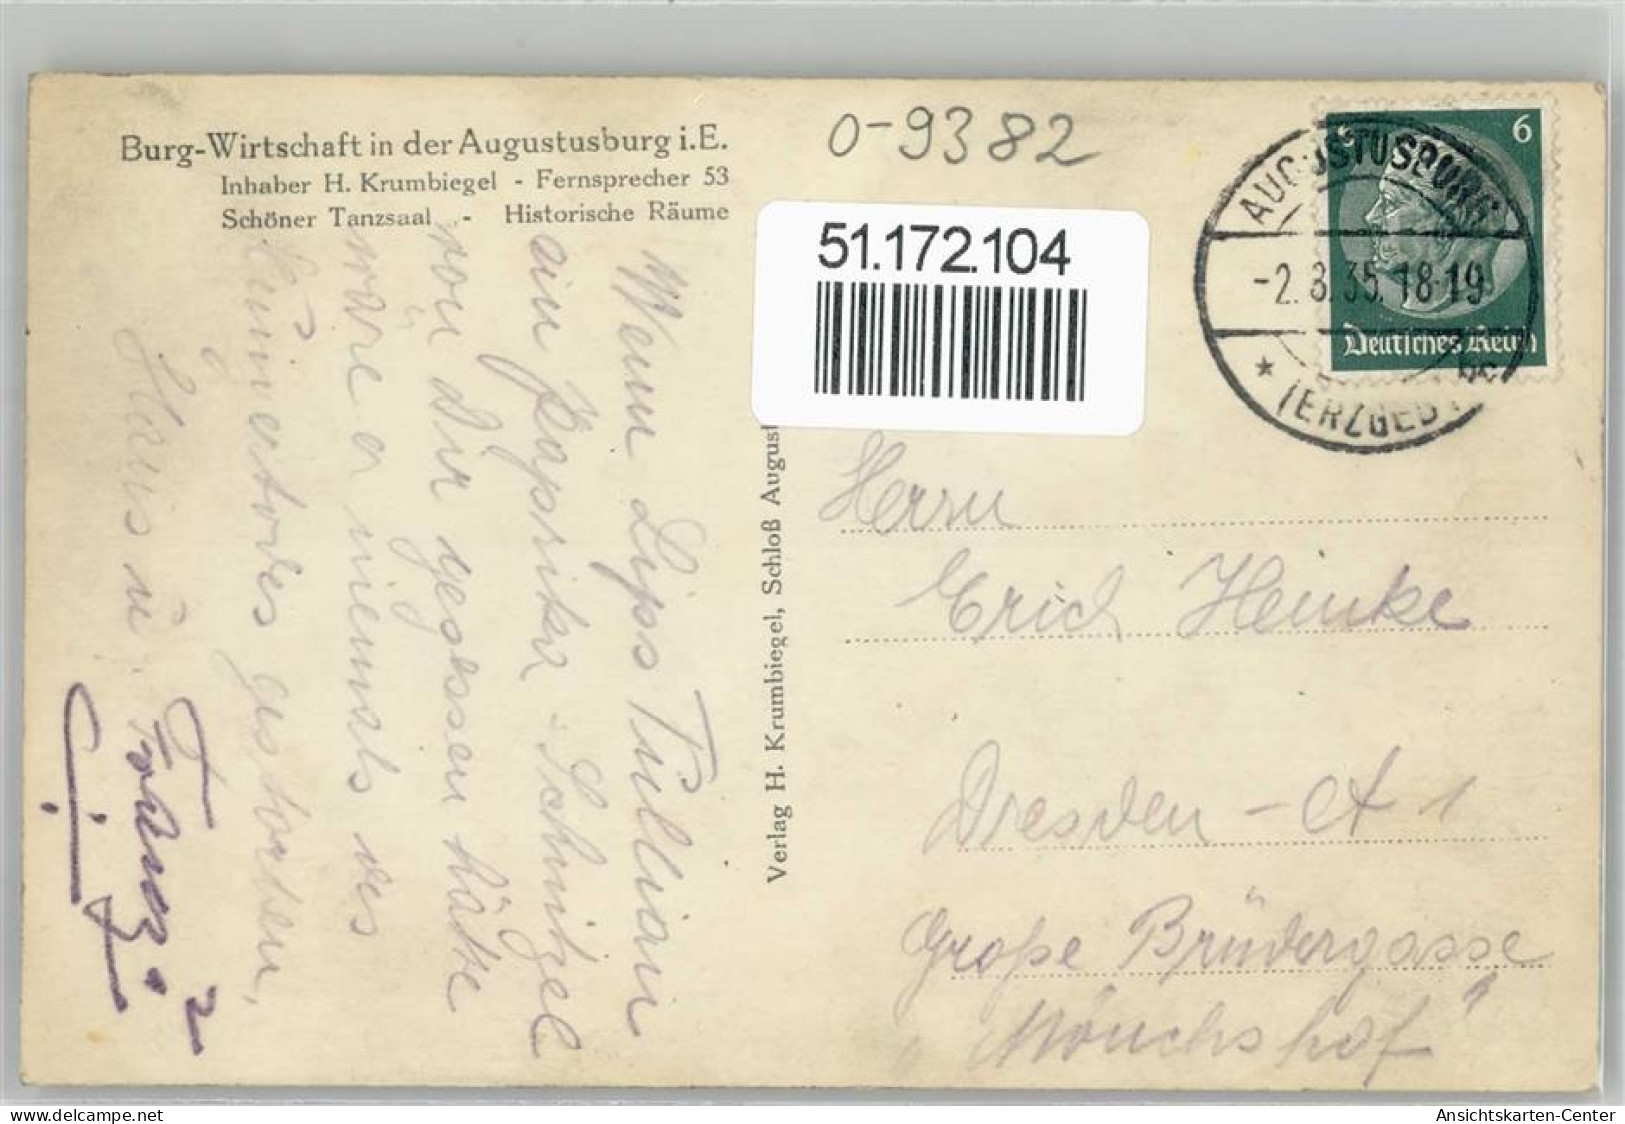 Burg-Wirtschaft in der Augustusburg i.E.
Inhaber H. Krumbiegel - Fernsprecher 53
Schöner Tanzsaal - Historische Räume
0-9382
51.172.104
6
AUGUSTUSBURG
-2.8.35.18-19
* (ERZGEB.)
Deutsches Reich
Wenn Lips Tullian
ein Paprika-Schnitzel
von Dir gegessen hätte
wäre er niemals des
Hungertodes gestorben,
Hans u.
Verlag H. Krumbiegel, Schloß August
Herrn
Erich Heinke
Dresden-A 1
Große Brüdergasse
"Mönchshof"
delcampe.net
Ansichtskarten-Center